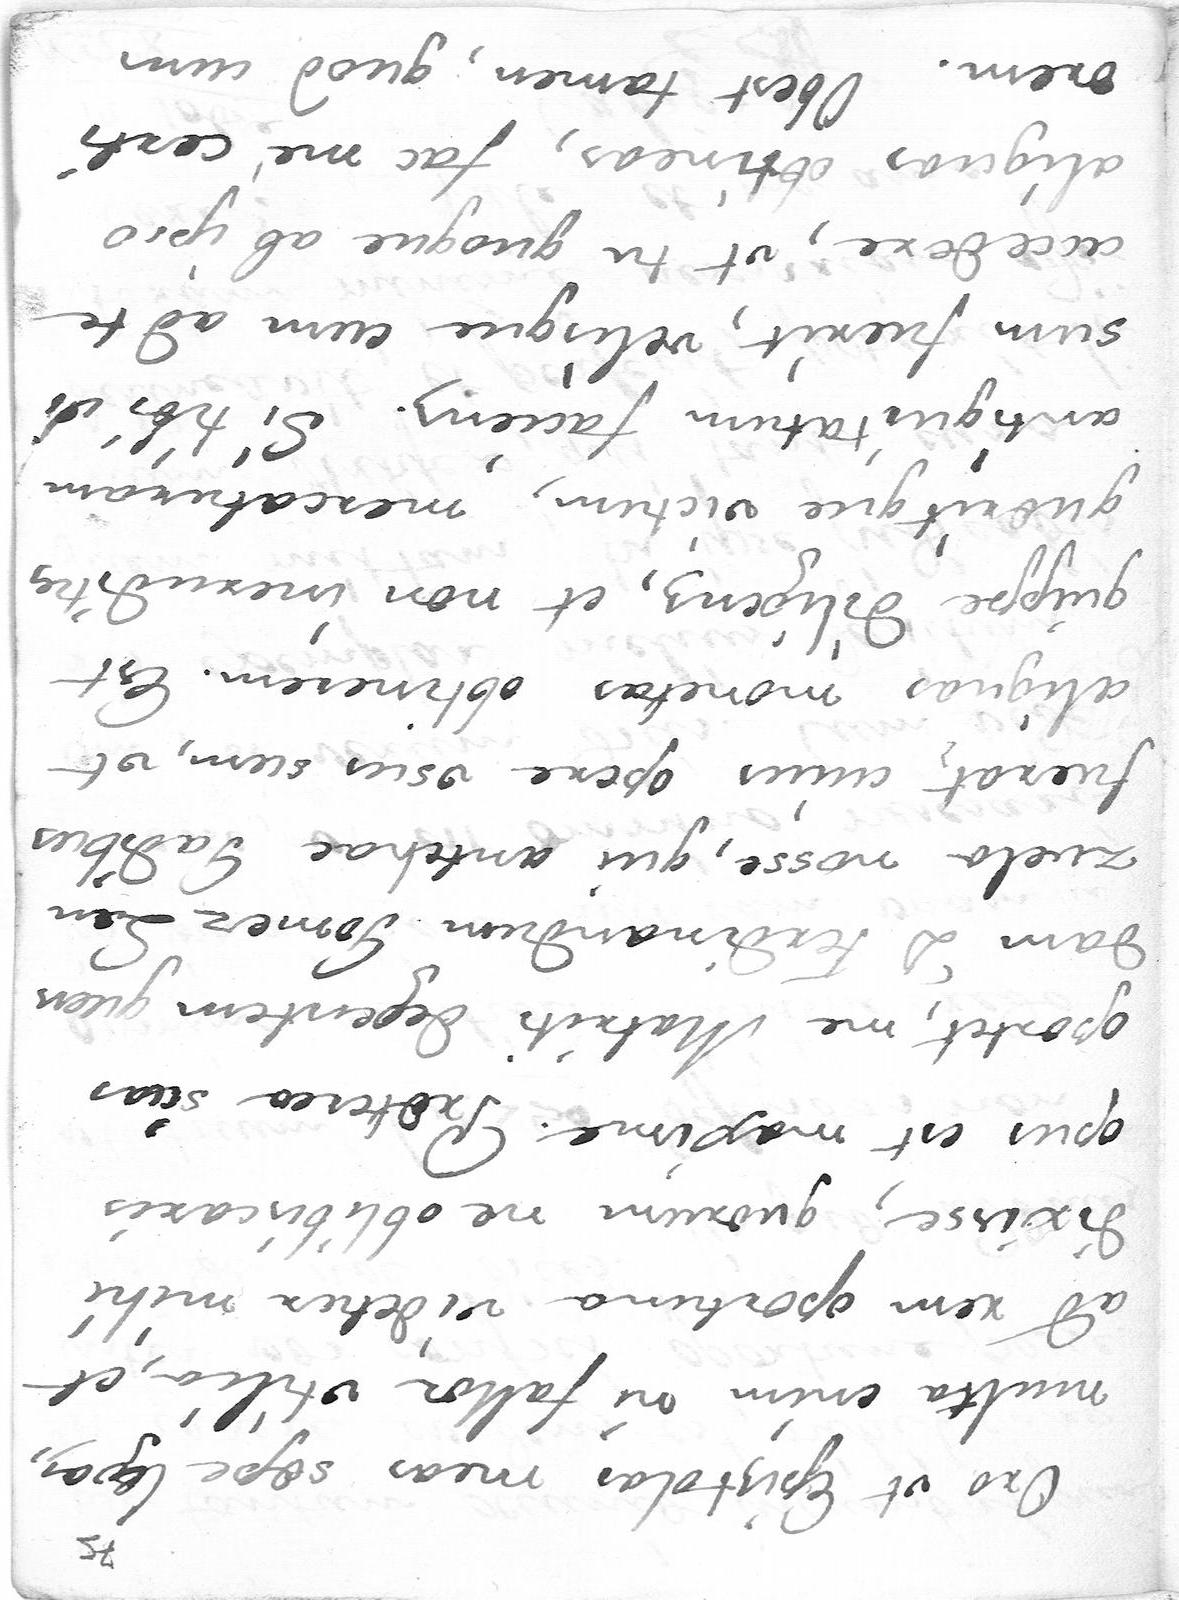 75
Oro vt Epistolas meas sæpe legas,
multa enim ni fallor vtilia, et
ad rem oportuna videtur mihi
dixisse, quorum ne obliviscaris
opus est maxime. Præterea scias
oportet, me Matriti degentem quen
dam D Ferdinandum Gomez Len
zuela nosse, qui antehac Gadibus
fuerat, cuius opere vsus sum, vt
aliquas monetas obtinerem. Est
quippe diligens, et non ineruditus
quæritque victum, mercaturam
antiquitatum faciens. Si tibi vi
sum fuerit, velisque eum ad te
accedere, vt tu quoque ab ipso
aliquas obtineas, fac me certi
orem. Obest tamen, quod cum